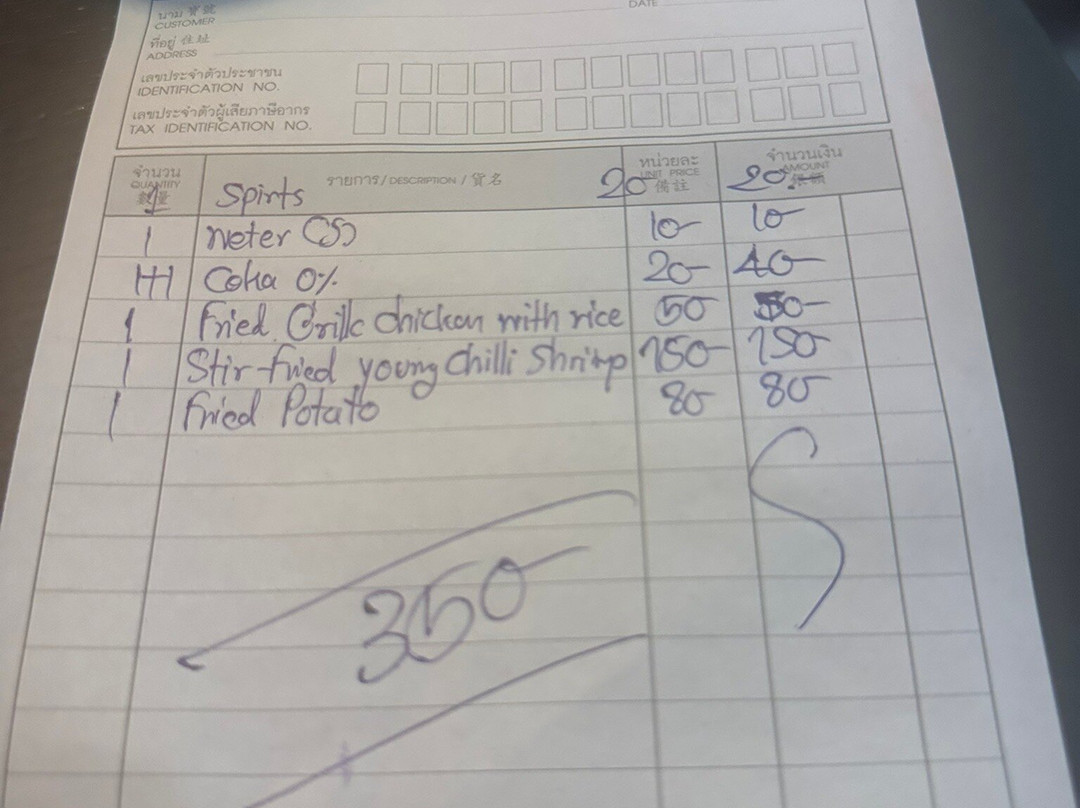 นาม 寶號
CUSTOMER
DATE
ที่อยู่ 住址
ADDRESS
เลขประจำตัวประชาชน
IDENTIFICATION NO.
เลขประจำตัวผู้เสียภาษีอากร
TAX IDENTIFICATION NO.
จำนวน QUANTITY 數量 รายการ/DESCRIPTION/貨名 หน่วยละ UNIT PRICE 備註 จำนวนเงิน AMOUNT 銀額
1 Spirts 20 20
1 neter (S) 10- 10-
Coka 0% 20- 40-
1 Fried Grille chicken with rice 50 50-
1 Stir-fried young chilli Shrimp 150- 150
1 Fried Potato 80 80
350